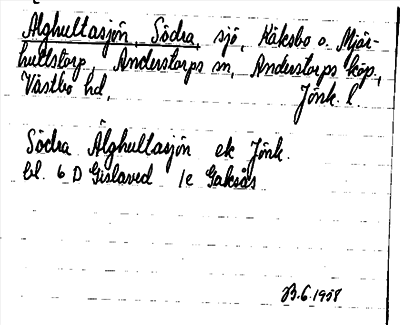 Älghultasjön, Södra, sjö, Käksbo o. Mjär-
hultstorp, Anderstorps sn, Anderstorps köp.,
Västbo hd, Jönk. l.
Södra Älghultasjön ek Jönk.
bl. 6 D Gislaved 1e Gaksås
23.6.1958